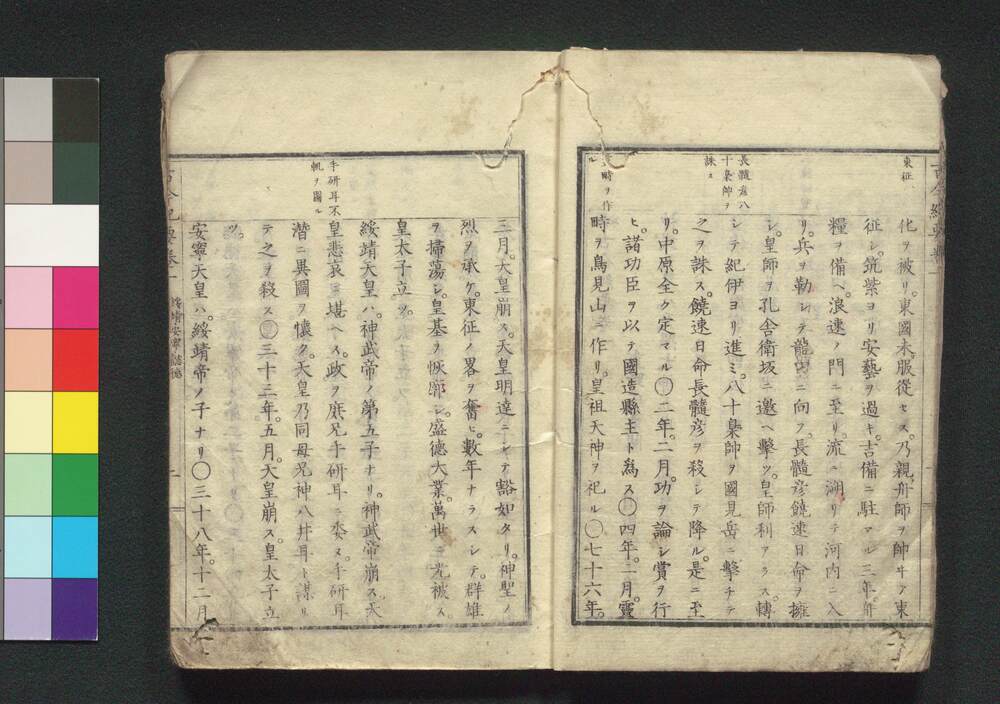 東征
化ヲ被リ。東國未服從セス。乃親舟師ヲ帥ヰテ東
征シ。筑紫ヨリ安藝ヲ過キ。吉備ニ駐マル三年。舟
糧ヲ備ヘ。浪速ノ門ニ至リ。流ニ溯リテ河内ニ入
リ。兵ヲ勒シテ龍田ニ向フ。長髓彦饒速日命ヲ擁
シ。皇師ヲ孔舎衛坂ニ邀ヘ擊ツ。皇師利アラス。轉
長髓彦八
十梟師ヲ
誅ス
シテ紀伊ヨリ進ミ。八十梟師ヲ國見岳ニ擊チテ
之ヲ誅ス。饒速日命長髓彦ヲ殺シテ降ル。是ニ至
リ。中原全ク定マル〇二年。二月。功ヲ論シ賞ヲ行
ヒ。諸功臣ヲ以テ國造縣主ト爲ス〇四年。二月。靈
時ヲ作
ル
時ヲ鳥見山ニ作リ。皇祖天神ヲ祀ル〇七十六年。
三月。大皇崩ス。天皇明達ニシテ豁如タリ。神聖ノ
烈ヲ承ケ。東征ノ畧ヲ奮ヒ。數年ナラスシテ。群雄
ヲ掃蕩シ。皇基ヲ恢廓シ。盛德大業。萬世ニ光被ス。
皇太子立ツ。
手研耳不
軌ヲ圖ル
綏靖天皇ハ。神武帝ノ第五子ナリ。神武帝崩ス。天
皇悲哀ニ堪ヘス。政ヲ庶兄手研耳ニ委ヌ。手研耳
潜ニ異圖ヲ懷ク。天皇乃同母兄神八井耳ト謀リ
テ之ヲ殺ス〇三十三年。五月。天皇崩ス。皇太子立
ツ。
安寧天皇ハ。綏靖帝ノ子ナリ〇三十八年。十二月
綏靖安寧懿德